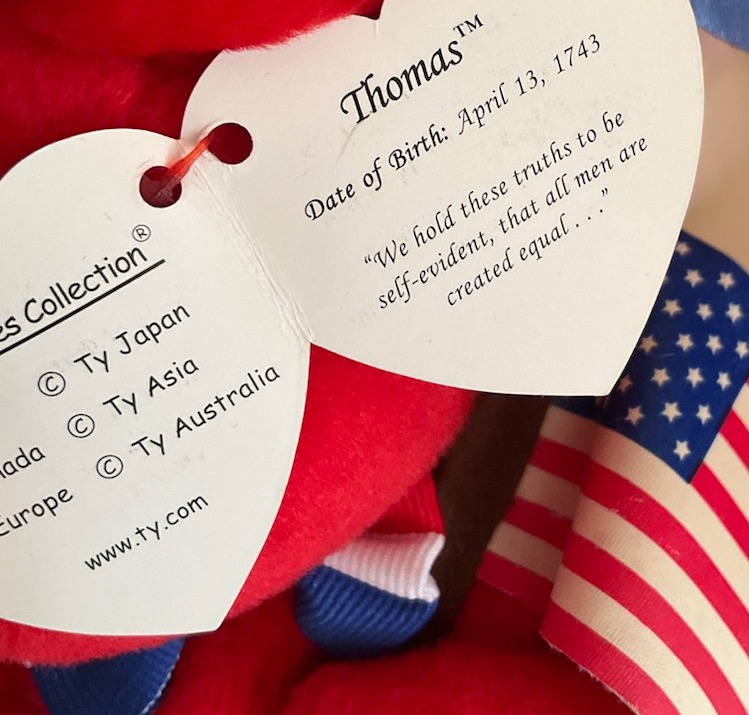 Thomas™
Date of Birth: April 13, 1743
“We hold these truths to be
self-evident, that all men are
created equal . . .”
es Collection®
© Ty Japan
© Ty Asia
nada © Ty Australia
Europe
www.ty.com